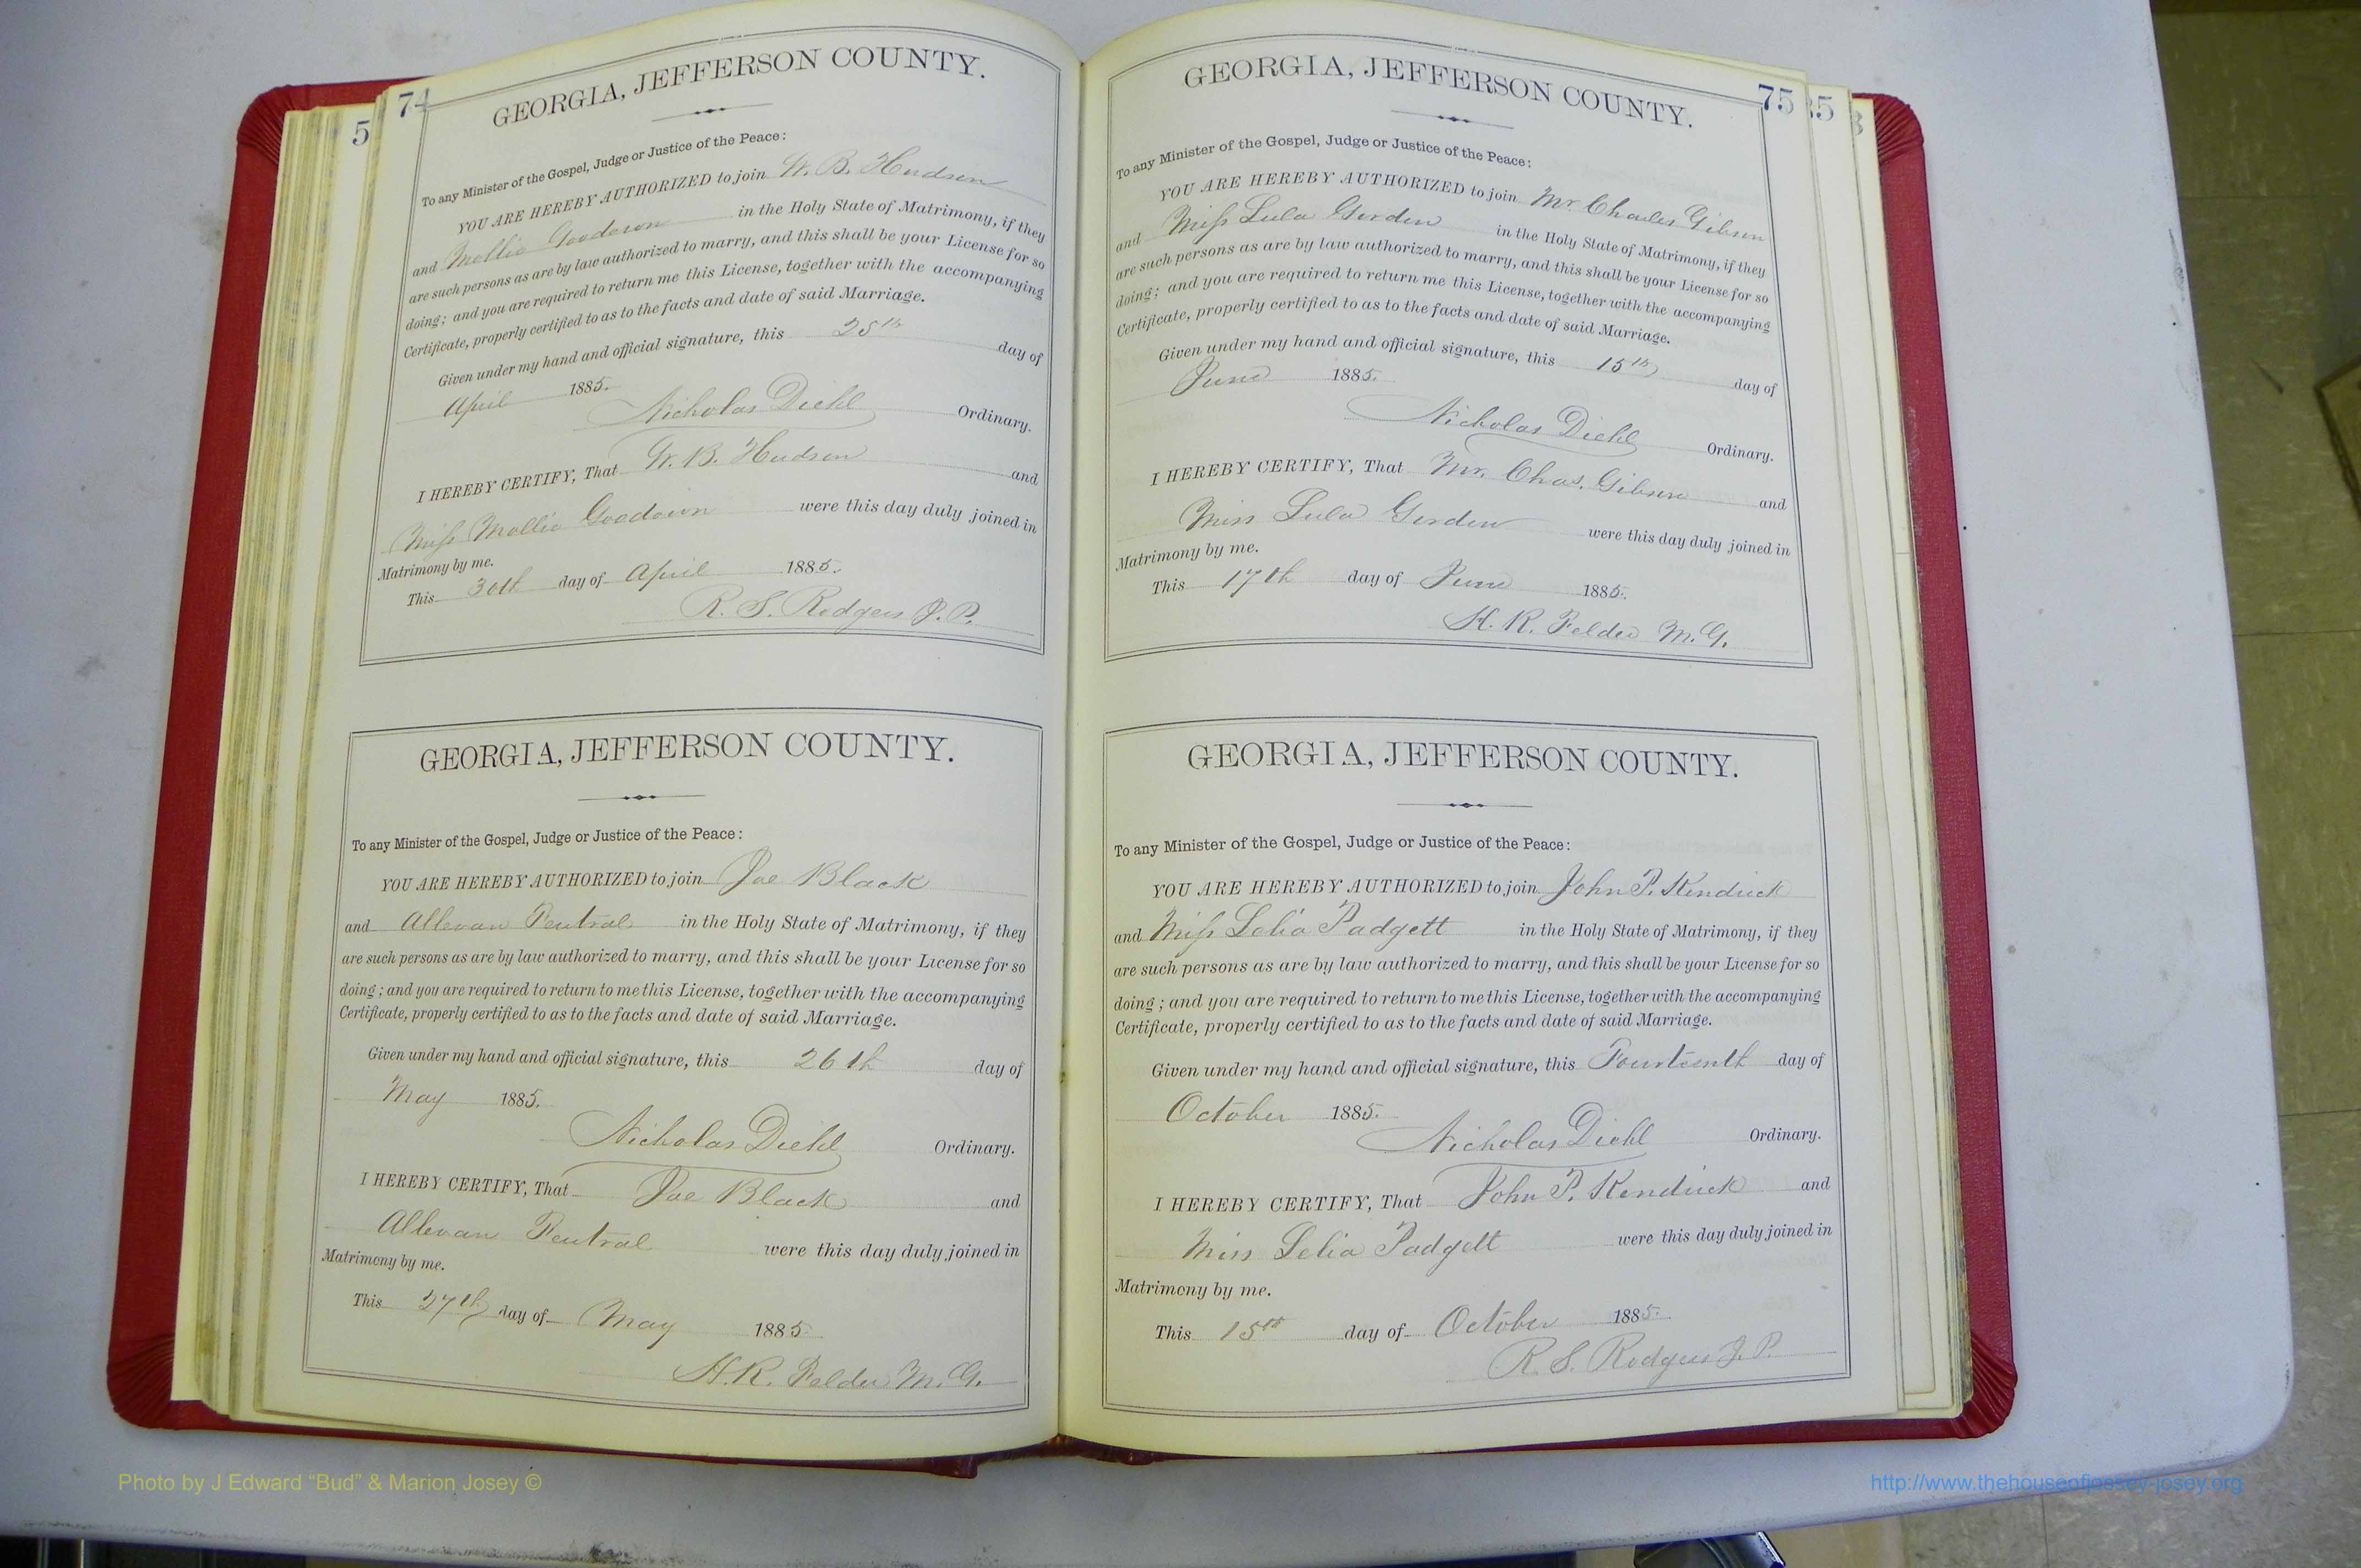 5
74
GEORGIA, JEFFERSON COUNTY.
To any Minister of the Gospel, Judge or Justice of the Peace:
YOU ARE HEREBY AUTHORIZED to join W. B. Hudson
and Mollie Goodown in the Holy State of Matrimony, if they
are such persons as are by law authorized to marry, and this shall be your License for so
doing; and you are required to return me this License, together with the accompanying
Certificate, properly certified to as to the facts and date of said Marriage.
Given under my hand and official signature, this 25th day of
April 1885.
Nicholas Diehl Ordinary.
I HEREBY CERTIFY, That W. B. Hudson and
Miss Mollie Goodown were this day duly joined in
Matrimony by me.
This 30th day of April 1885.
R. S. Rodgers J. P.
GEORGIA, JEFFERSON COUNTY.
To any Minister of the Gospel, Judge or Justice of the Peace:
YOU ARE HEREBY AUTHORIZED to join Joe Black
and Allevan Pentral in the Holy State of Matrimony, if they
are such persons as are by law authorized to marry, and this shall be your License for so
doing; and you are required to return to me this License, together with the accompanying
Certificate, properly certified to as to the facts and date of said Marriage.
Given under my hand and official signature, this 26th day of
May 1885.
Nicholas Diehl Ordinary.
I HEREBY CERTIFY, That Joe Black and
Allevan Pentral were this day duly joined in
Matrimony by me.
This 27th day of May 1885
H. R. Felder M. G.
75
GEORGIA, JEFFERSON COUNTY.
To any Minister of the Gospel, Judge or Justice of the Peace:
YOU ARE HEREBY AUTHORIZED to join Mr Charles Gibson
and Miss Lula Gordon in the Holy State of Matrimony, if they
are such persons as are by law authorized to marry, and this shall be your License for so
doing; and you are required to return me this License, together with the accompanying
Certificate, properly certified to as to the facts and date of said Marriage.
Given under my hand and official signature, this 15th day of
June 1885.
Nicholas Diehl Ordinary.
I HEREBY CERTIFY, That Mr. Chas. Gibson and
Miss Lula Gordon were this day duly joined in
Matrimony by me.
This 17th day of June 1885.
H. R. Felder M. G.
GEORGIA, JEFFERSON COUNTY.
To any Minister of the Gospel, Judge or Justice of the Peace:
YOU ARE HEREBY AUTHORIZED to join John P. Kendrick
and Miss Lelia Padgett in the Holy State of Matrimony, if they
are such persons as are by law authorized to marry, and this shall be your License for so
doing; and you are required to return to me this License, together with the accompanying
Certificate, properly certified to as to the facts and date of said Marriage.
Given under my hand and official signature, this Fourteenth day of
October 1885.
Nicholas Diehl Ordinary.
I HEREBY CERTIFY, That John P. Kendrick and
Miss Lelia Padgett were this day duly joined in
Matrimony by me.
This 15th day of October 1885.
R. S. Rodgers J. P.
Photo by J Edward “Bud” & Marion Josey ©
http://www.thehouseofjossey-josey.org